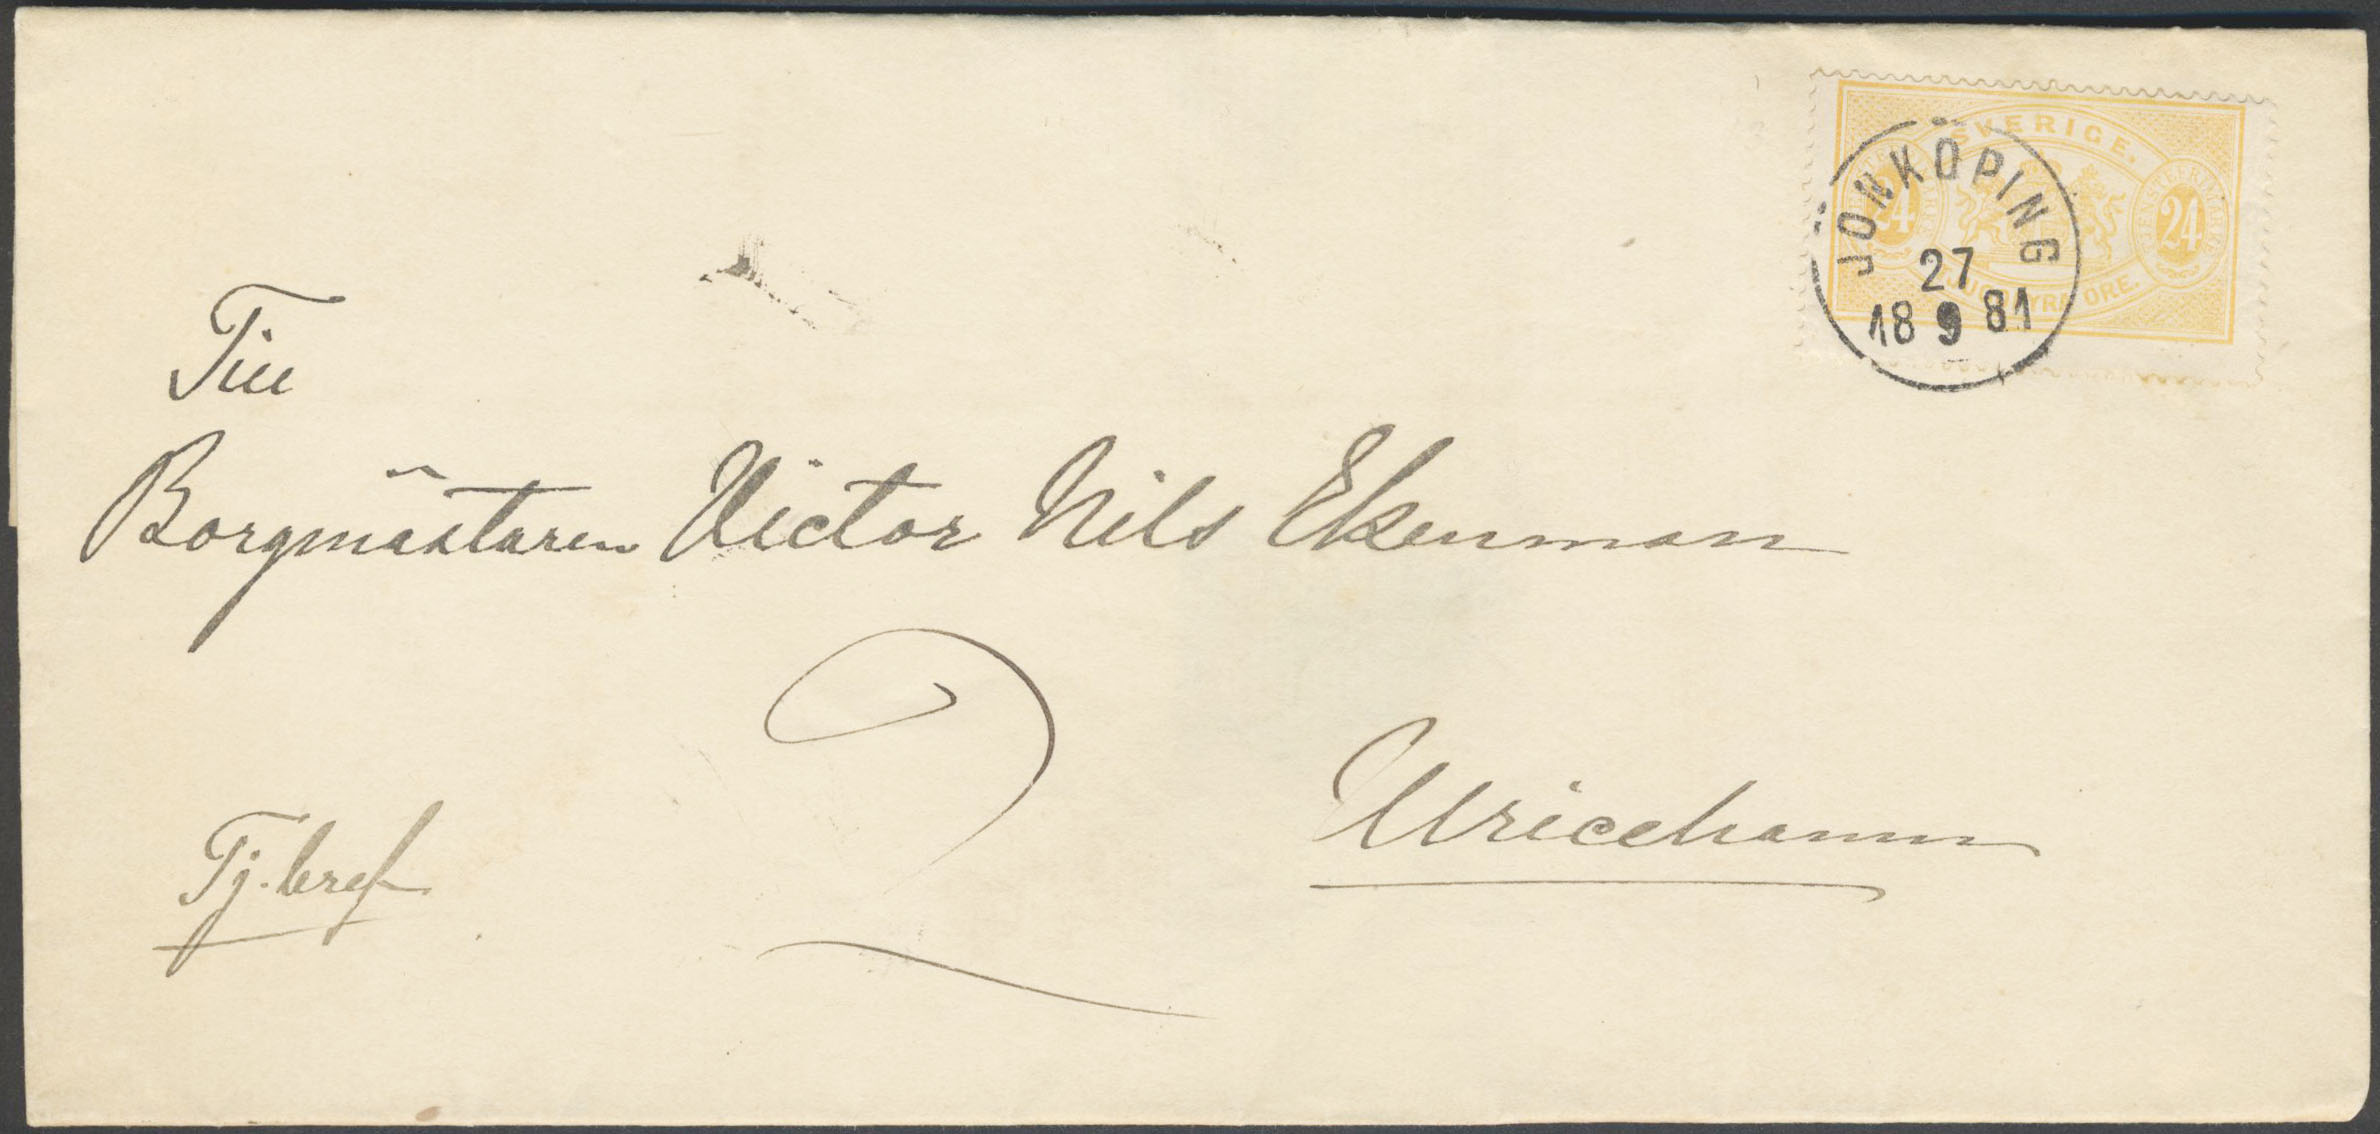 SVERIGE.
24
24
TJUGUFYRA ÖRE.
JÖNKÖPING
27
18 9 81
Till
Borgmästaren Victor Nils Ekenman
2
Ulricehamn
Tj. bref